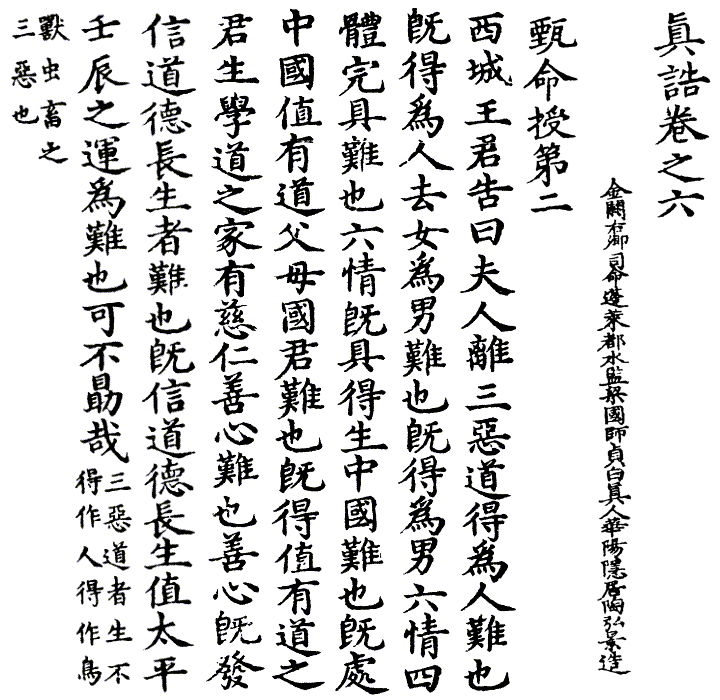 真誥卷之六
金闕右卿司命蓬萊都水監梁國師貞白真人華陽隱居陶弘景造
甄命授第二
西城王君告曰夫人離三惡道得爲人難也
旣得爲人去女爲男難也旣得爲男六情四
體完具難也六情旣具得生中國難也旣處
中國值有道父母國君難也旣得值有道之
君生學道之家有慈仁善心難也善心旣發
信道德長生者難也旣信道德長生值太平
壬辰之運爲難也可不勗哉
三惡道者生不
得作人得作鳥
獸虫畜之
三惡也